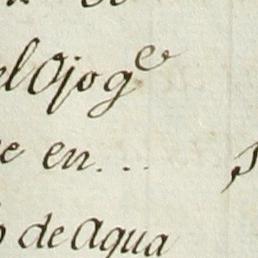 el Ojo g.e
e en...
de Agua